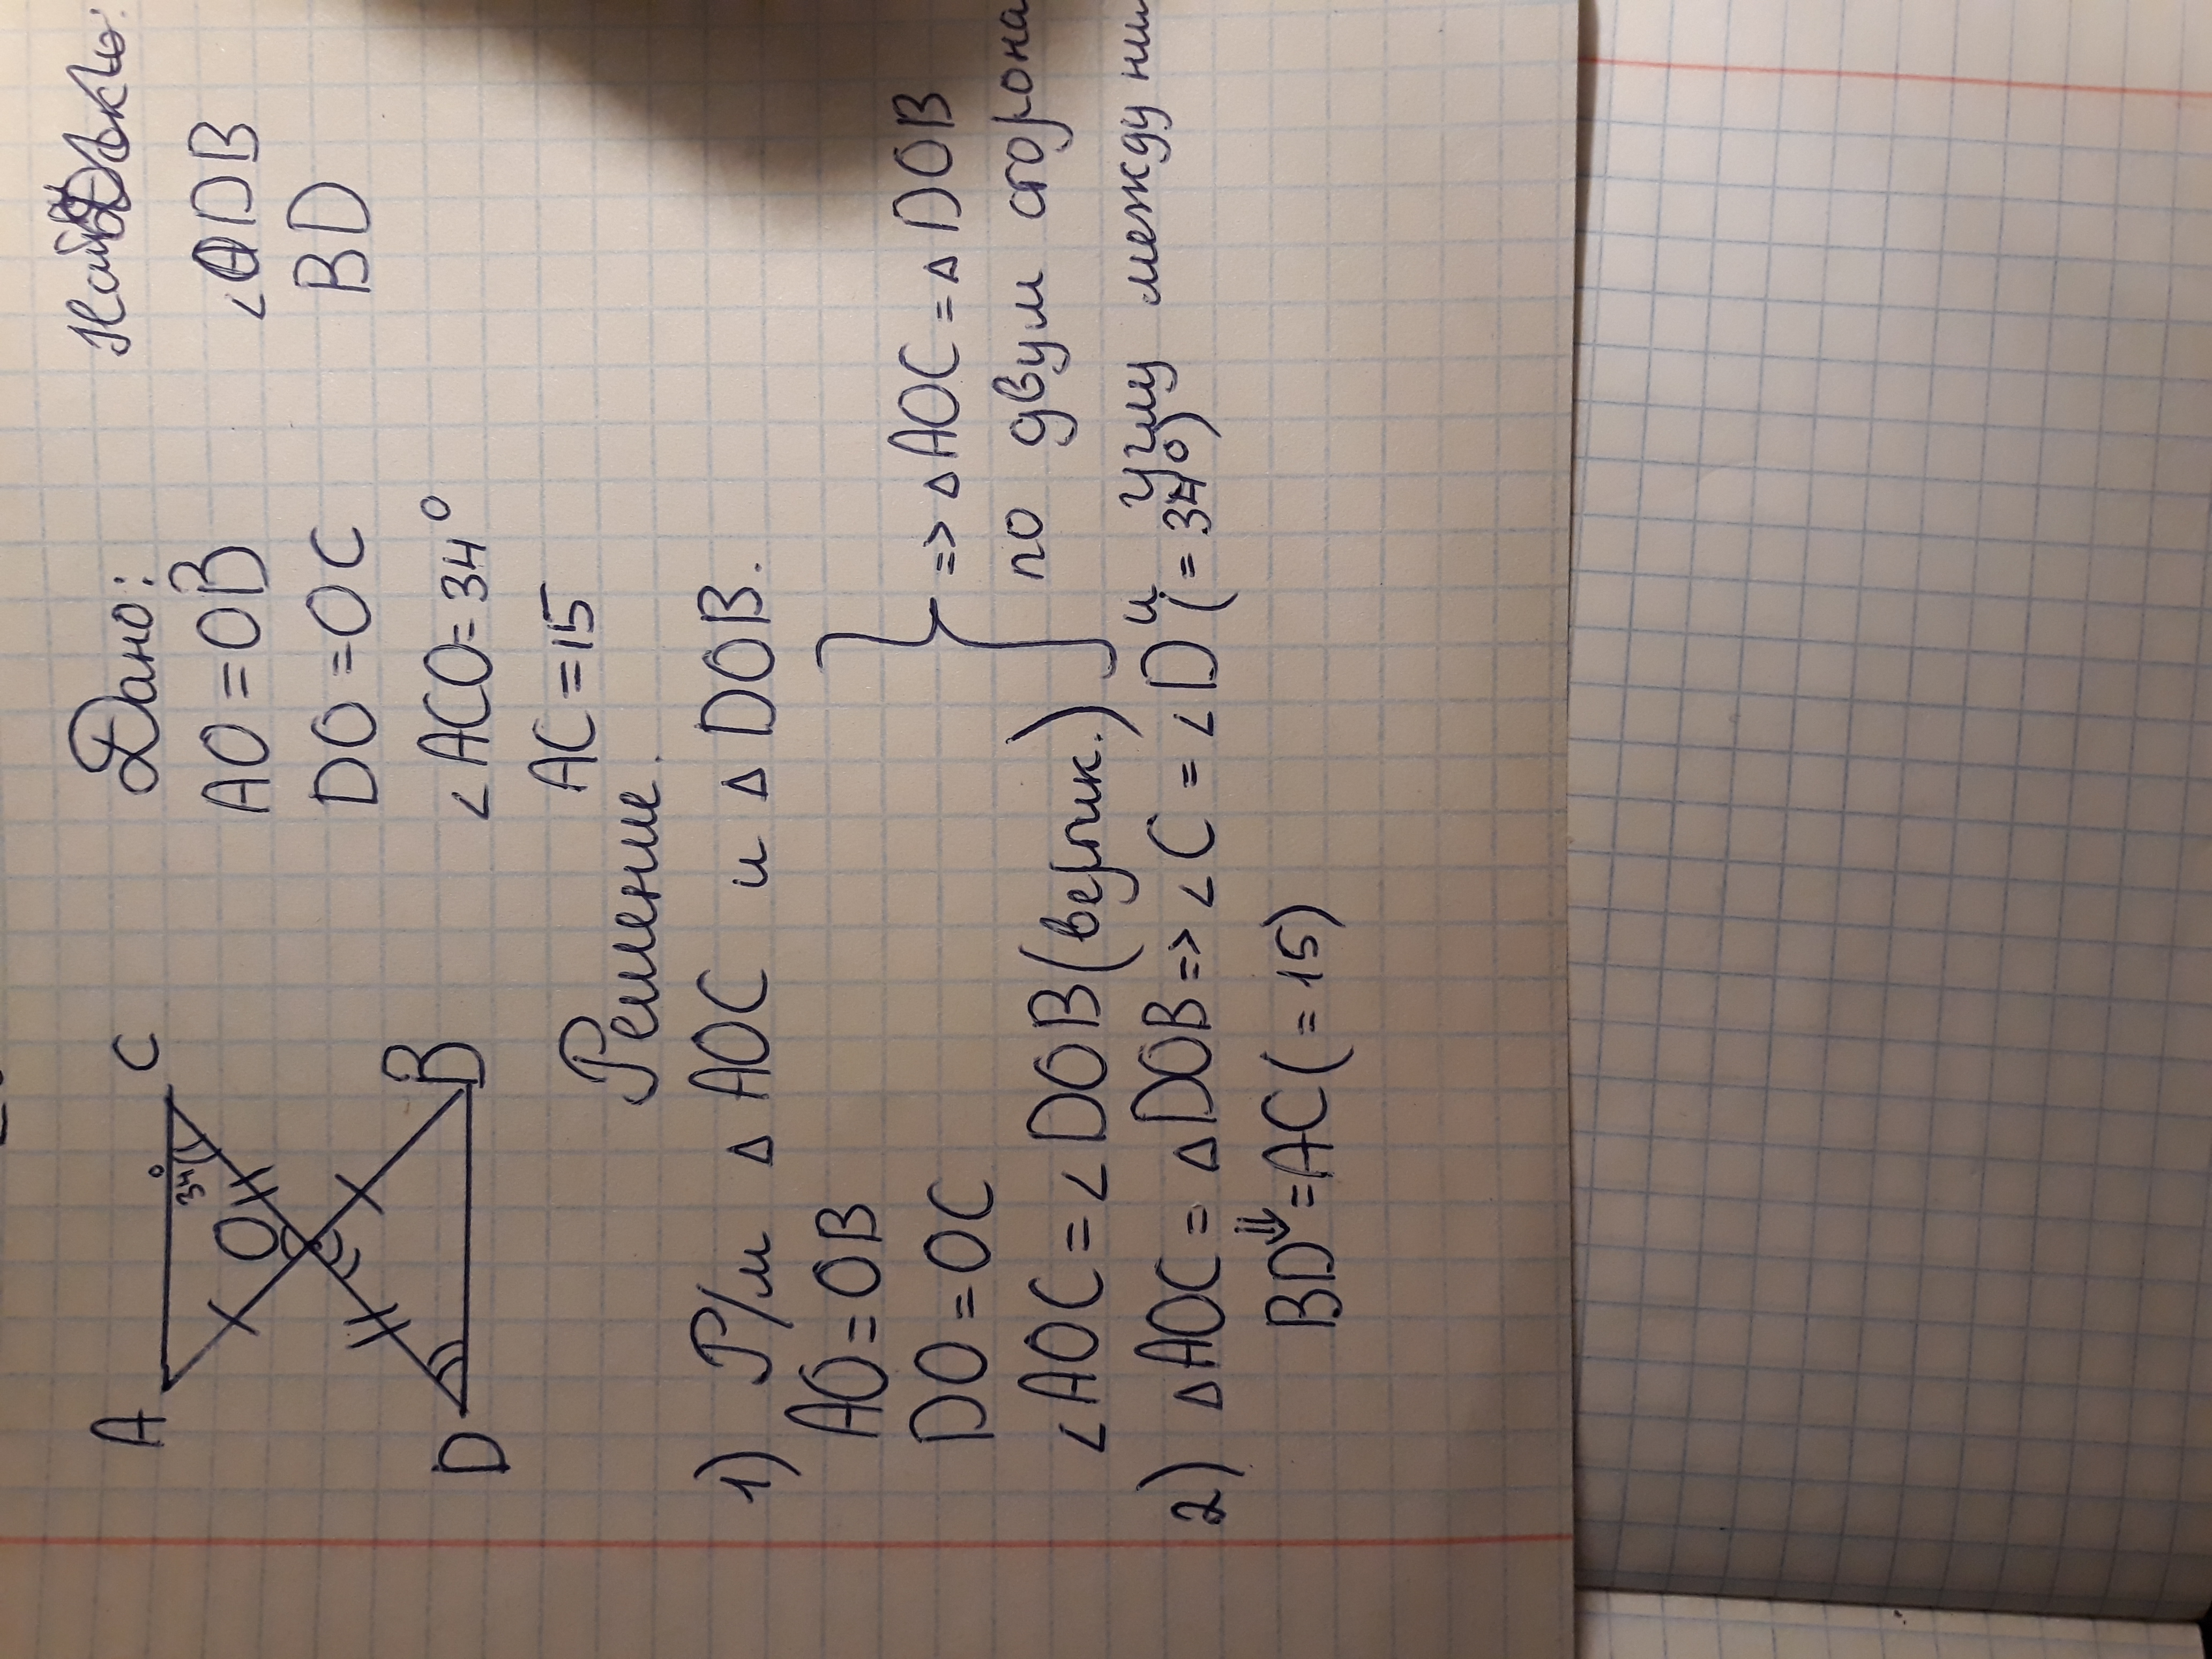 A
C
34°
O
D
B
Дано:
AO = OB
DO = OC
∠ACO = 34°
AC = 15
∠ODB
BD
Решение.
1) Р/м △ AOC и △ DOB.
AO = OB
DO = OC
∠AOC = ∠DOB (вертик.)
=> △ AOC = △ DOB
по двум сторона
и углу между ни
2) △ AOC = △ DOB => ∠C = ∠D (= 34°)
⇓
BD = AC (= 15)